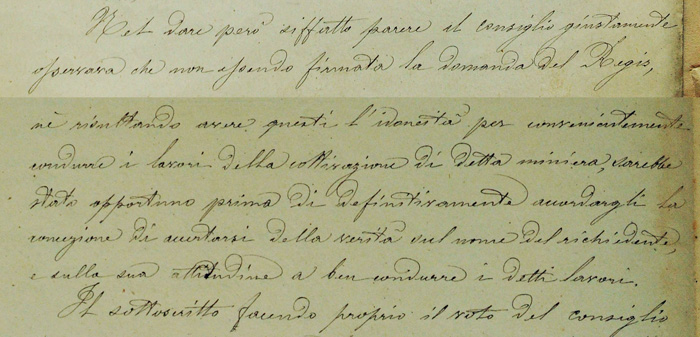 Nel dare però siffatto parere il consiglio giustamente
osservava che non essendo firmata la domanda del Regis,
nè risultando avere questi l'idoneità per convenientemente
condurre i lavori della coltivazione di detta miniera, sarebbe
stato opportuno prima di definitivamente accordargli la
concezione di accertarsi della verità sul nome del richiedente,
e sulla sua attitudine a ben condurre i detti lavori.
Il sottoscritto facendo proprio il voto del consiglio